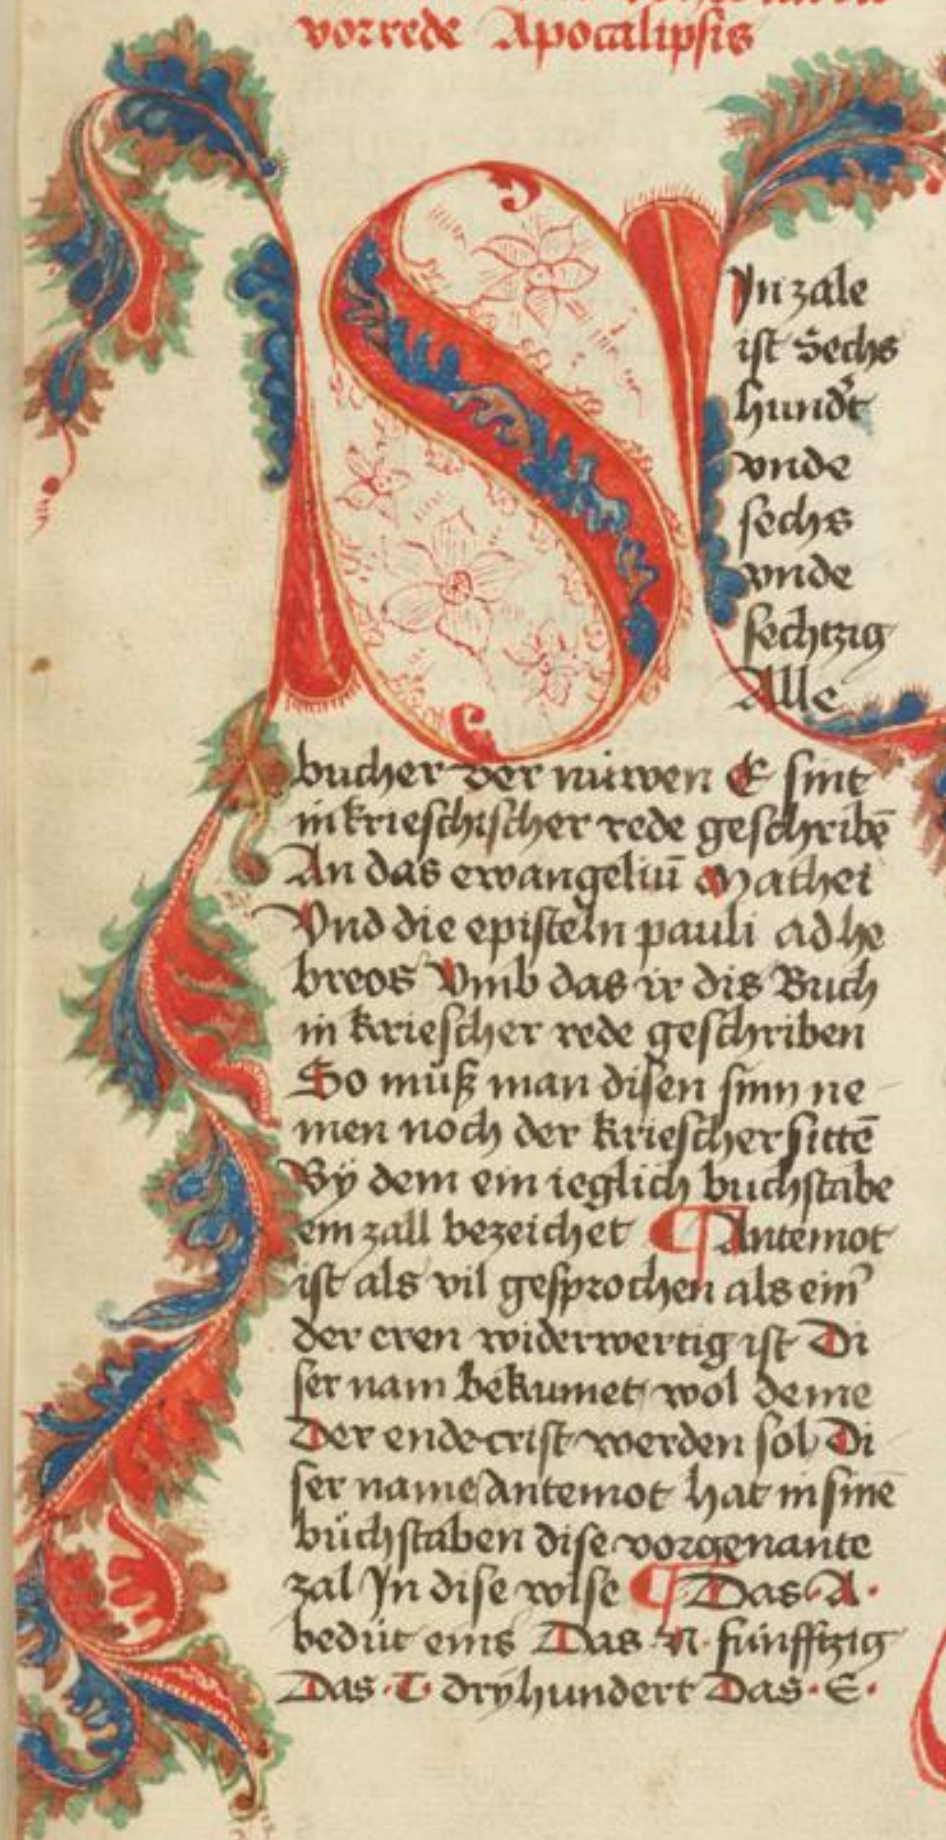 vorrede Apocalipsis
SIn zale
ist Sechs
hund't
vnde
sechs
vnde
sechtzig
Alle
bucher der nüwen E sint
in krieschischer rede geschribē
An das ewangeliū Mathei
Vnd die episteln pauli ad he
breos Vmb das ir dis Buch
in kriescher rede geschriben
So müß man disen sinn ne
men noch der kriescher sittē
Bÿ dem ein ieglich buchstabe
ein zall bezeichet ¶ Antemot
ist als vil gesprochen als ein'
der eren widerwertig ist Di
ser nam bekumet wol deme
Der endecrist werden sol Di
ser name Antemot hat in sinē
büchstaben dise vorgenante
zal In dise wise ¶ Das · A ·
bedüt eins Das · N · fünfftzig
Das · T · drÿhundert Das · E ·